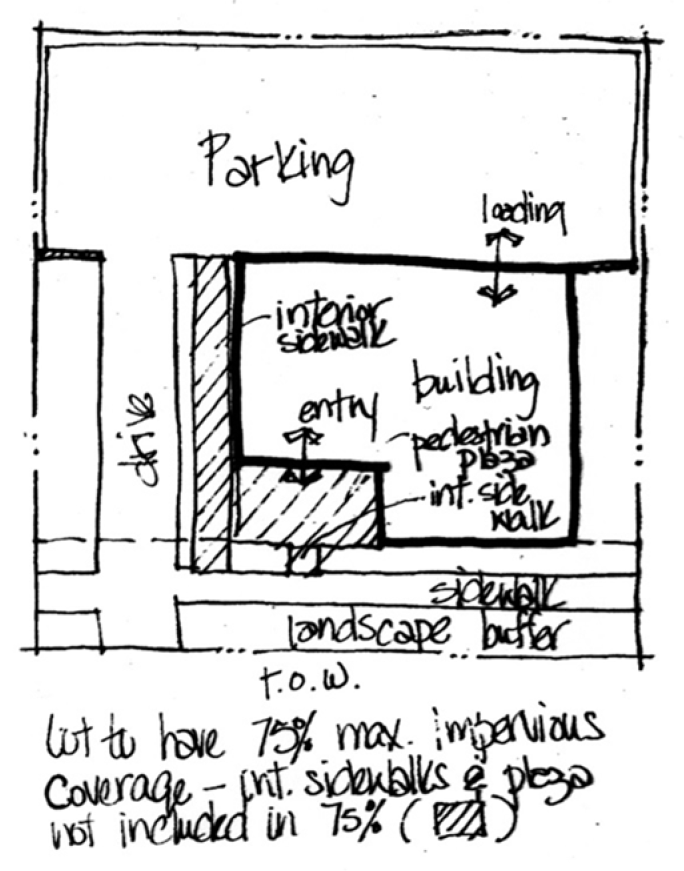 Parking
loading
interior
sidewalk
building
entry
drive
pedestrian
plaza
int. side
walk
sidewalk
landscape buffer
r.o.w.
lot to have 75% max. impervious
coverage - int. sidewalks & plaza
not included in 75% ( )